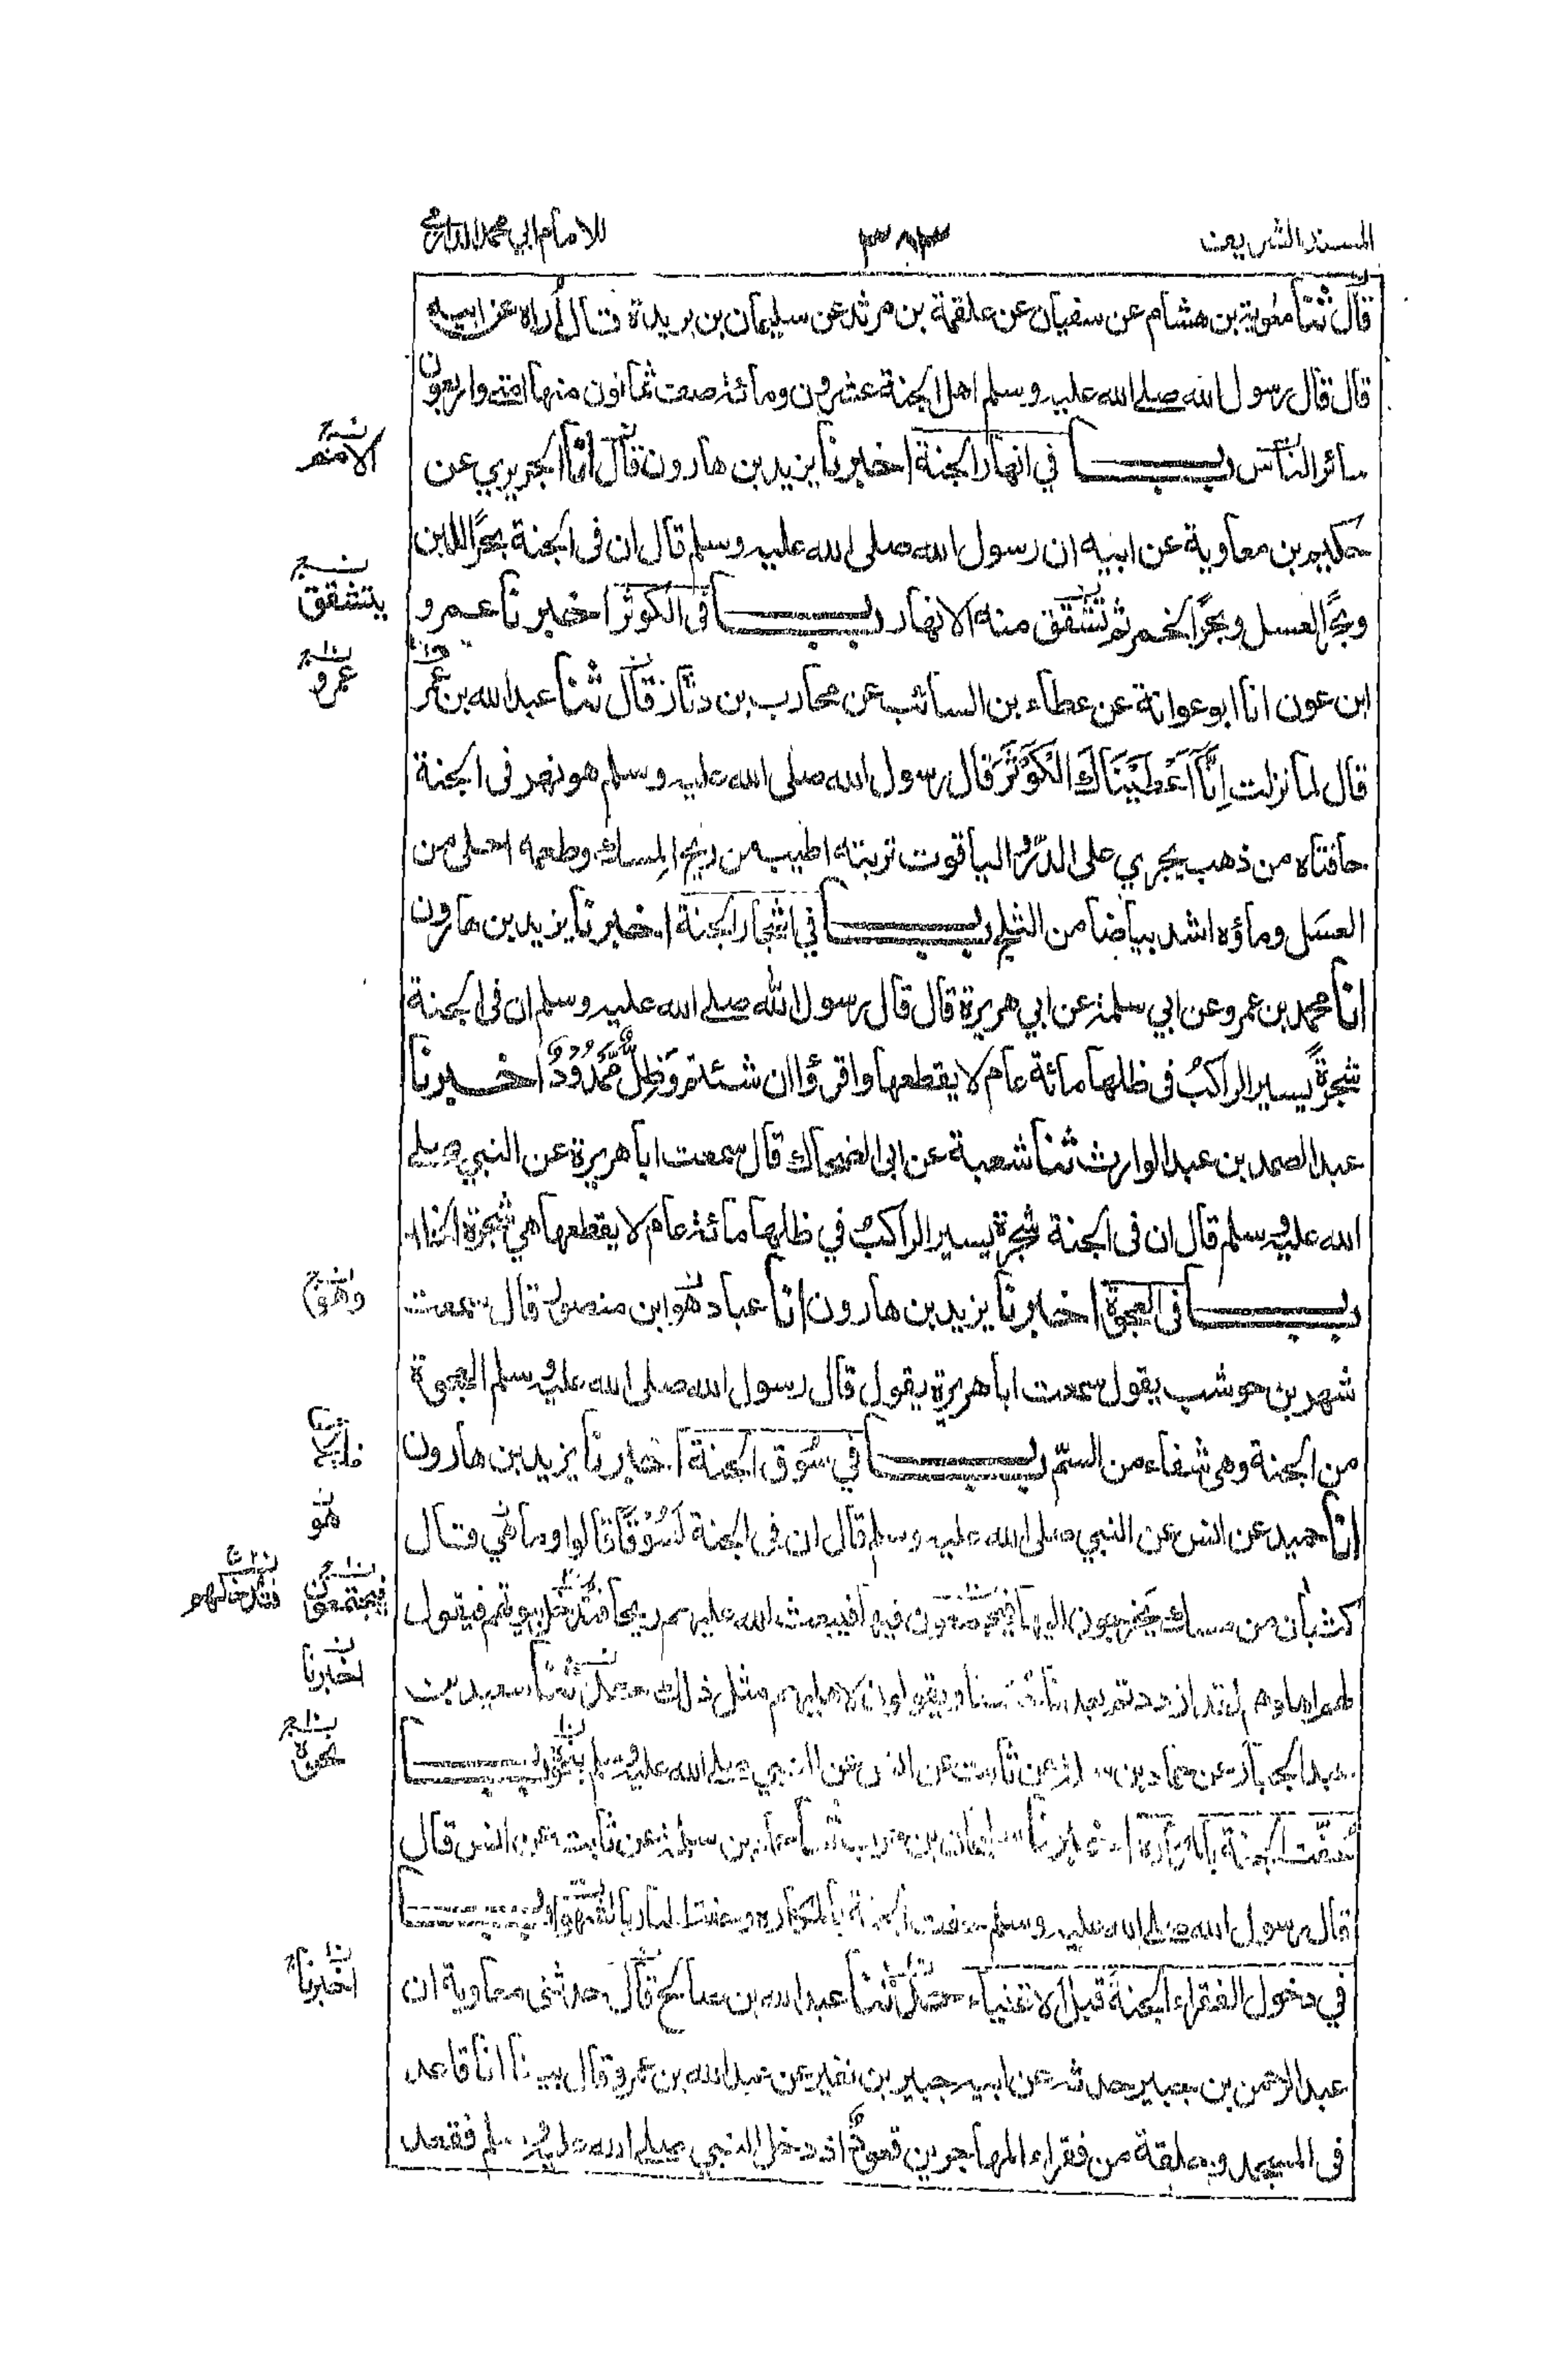 المسند الشريف
٣٨٣
للامام ابي محمد الدارمي
قال ثنا معوية بن هشام عن سفيان عن علقمة بن مرثد عن سليمان بن بريدة قال أراه عن ابيه
قال قال رسول الله صلے الله عليه وسلم اهل الجنة عشرون ومائة صف ثمانون منها امتي واربعون
سائر الناس باب في انهار الجنة اخبرنا يزيد بن هارون قال انا الجريري عن
حكيم بن معاوية عن ابيه ان رسول الله صلى الله عليه وسلم قال ان فى الجنة بحر اللبن
وبحر العسل وبحر الخمر ثم تشقق منه الانهار باب فى الكوثر اخبرنا عمرو
ابن عون انا ابو عوانة عن عطاء بن السائب عن محارب بن دثار قال ثنا عبد الله بن عمر
قال لما نزلت اِنَّا اَعْطَيْنَاكَ الْكَوْثَرَ قال رسول الله صلى الله عليه وسلم هو نهر فى الجنة
حافتاه من ذهب يجري على الدر والياقوت تربته اطيب من ريح المسك وطعمه احلى من
العسل وماؤه اشد بياضا من الثلج باب في اشجار الجنة اخبرنا يزيد بن هارون
انا محمد بن عمرو عن ابي سلمة عن ابي هريرة قال قال رسول الله صلے الله عليه وسلم ان فى الجنة
شجرةً يسير الراكبُ فى ظلها مائة عام لا يقطعها واقرؤا ان شئتم وَظِلٍّ مَّمْدُوْدٍ اخبرنا
عبد الصمد بن عبد الوارث ثنا شعبة عن ابى الضحاك قال سمعت ابا هريرة عن النبي صلے
الله عليه وسلم قال ان فى الجنة شجرة يسير الراكبُ في ظلها مائة عام لا يقطعها هي شجرة الخلد
باب فى العجوة اخبرنا يزيد بن هارون انا عباد هو ابن منصور قال سمعت
شهر بن حوشب يقول سمعت ابا هريرة يقول قال رسول الله صلى الله عليه وسلم العجوة
من الجنة وهى شفاء من السمّ باب في سُوق الجنة اخبرنا يزيد بن هارون
انا حميد عن انس عن النبي صلى الله عليه وسلم قال ان فى الجنة لَسُوْقًا قالوا وما هي قال
كثبان من مسك يخرجون اليها فيجتمعون فيها فيبعث الله عليهم ريحا فتدخلهم بيوتهم فيقول
لهم اهلوهم لقد ازددتم بعدنا حسنا ويقولون لاهليهم مثل ذلك حدثنا سعيد بن
عبد الجبار عن حماد بن سلمة عن ثابت عن انس عن النبي صلے الله عليه وسلم بنحوه باب
حُفّت الجنة بالمكاره اخبرنا سليمان بن حرب ثنا حماد بن سلمة عن ثابت عن انس قال
قال رسول الله صلے الله عليه وسلم حفت الجنة بالمكاره وحفت النار بالشهوات باب
في دخول الفقراء الجنة قبل الاغنياء حدثنا عبد الله بن صالح قال حدثنى معاوية ان
عبد الرحمن بن جبير حدثه عن ابيه جبير بن نفير عن عبد الله بن عمرو قال بينا انا قاعد
فى المسجد وحلقة من فقراء المهاجرين قعودٌ اذ دخل النبي صلے الله عليه وسلم فقعد
الامم
يتشقق
عمرو
وهو
هو
فيجتمعون
فتدخلهم
اخبرنا
نحوه
اخبرنا